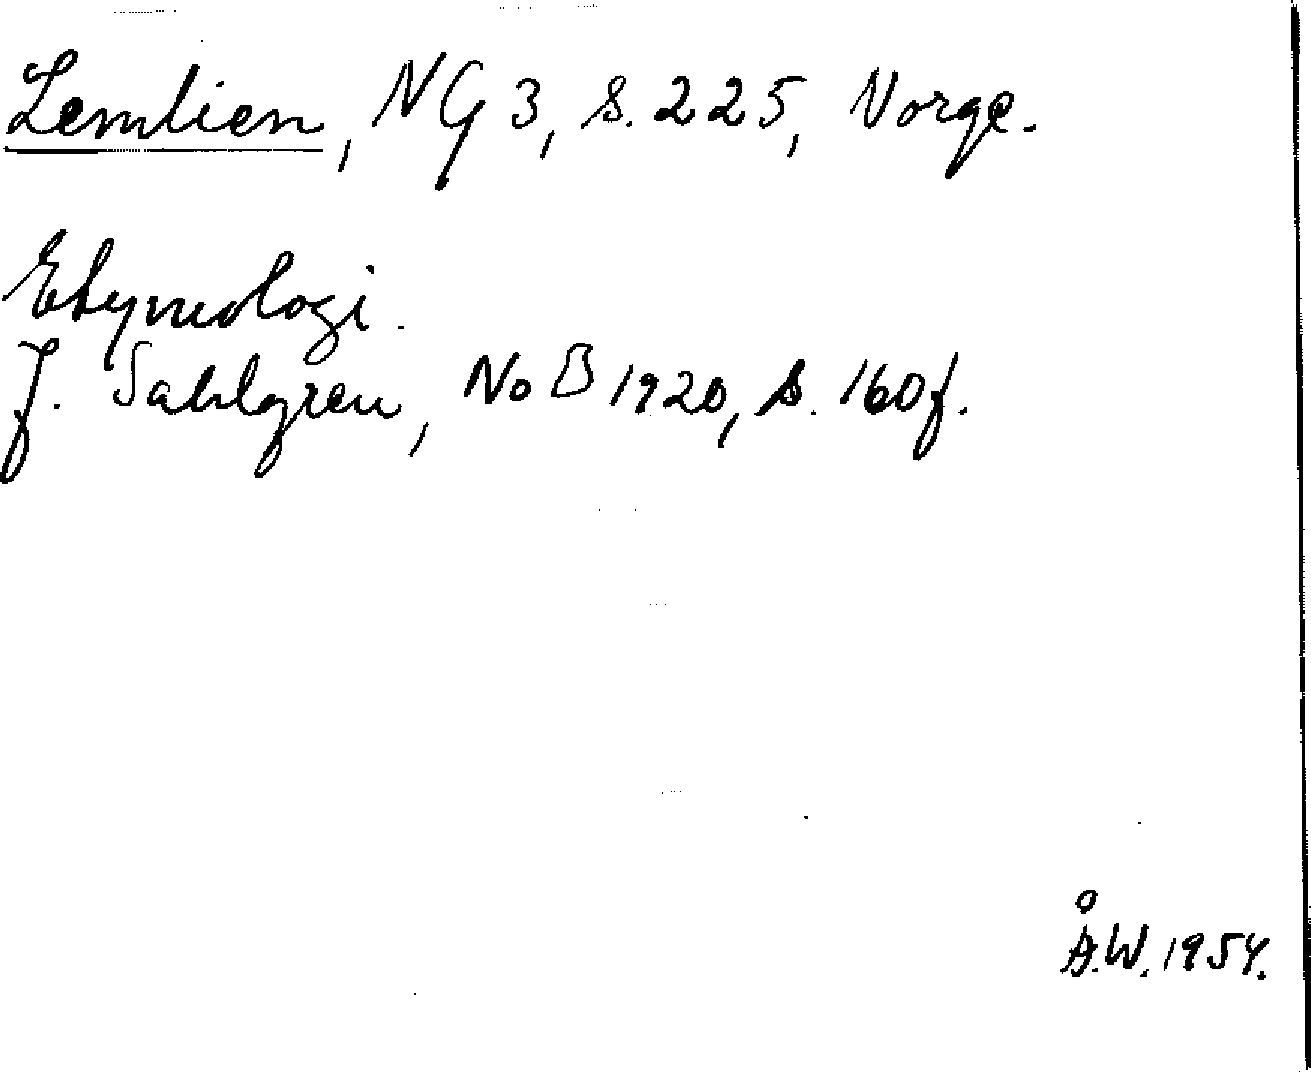 Lemlien, NG 3, s. 225, Norge.
Etymologi.
J. Sahlgren, NoB 1920, s. 160f.
Å.W. 1954.